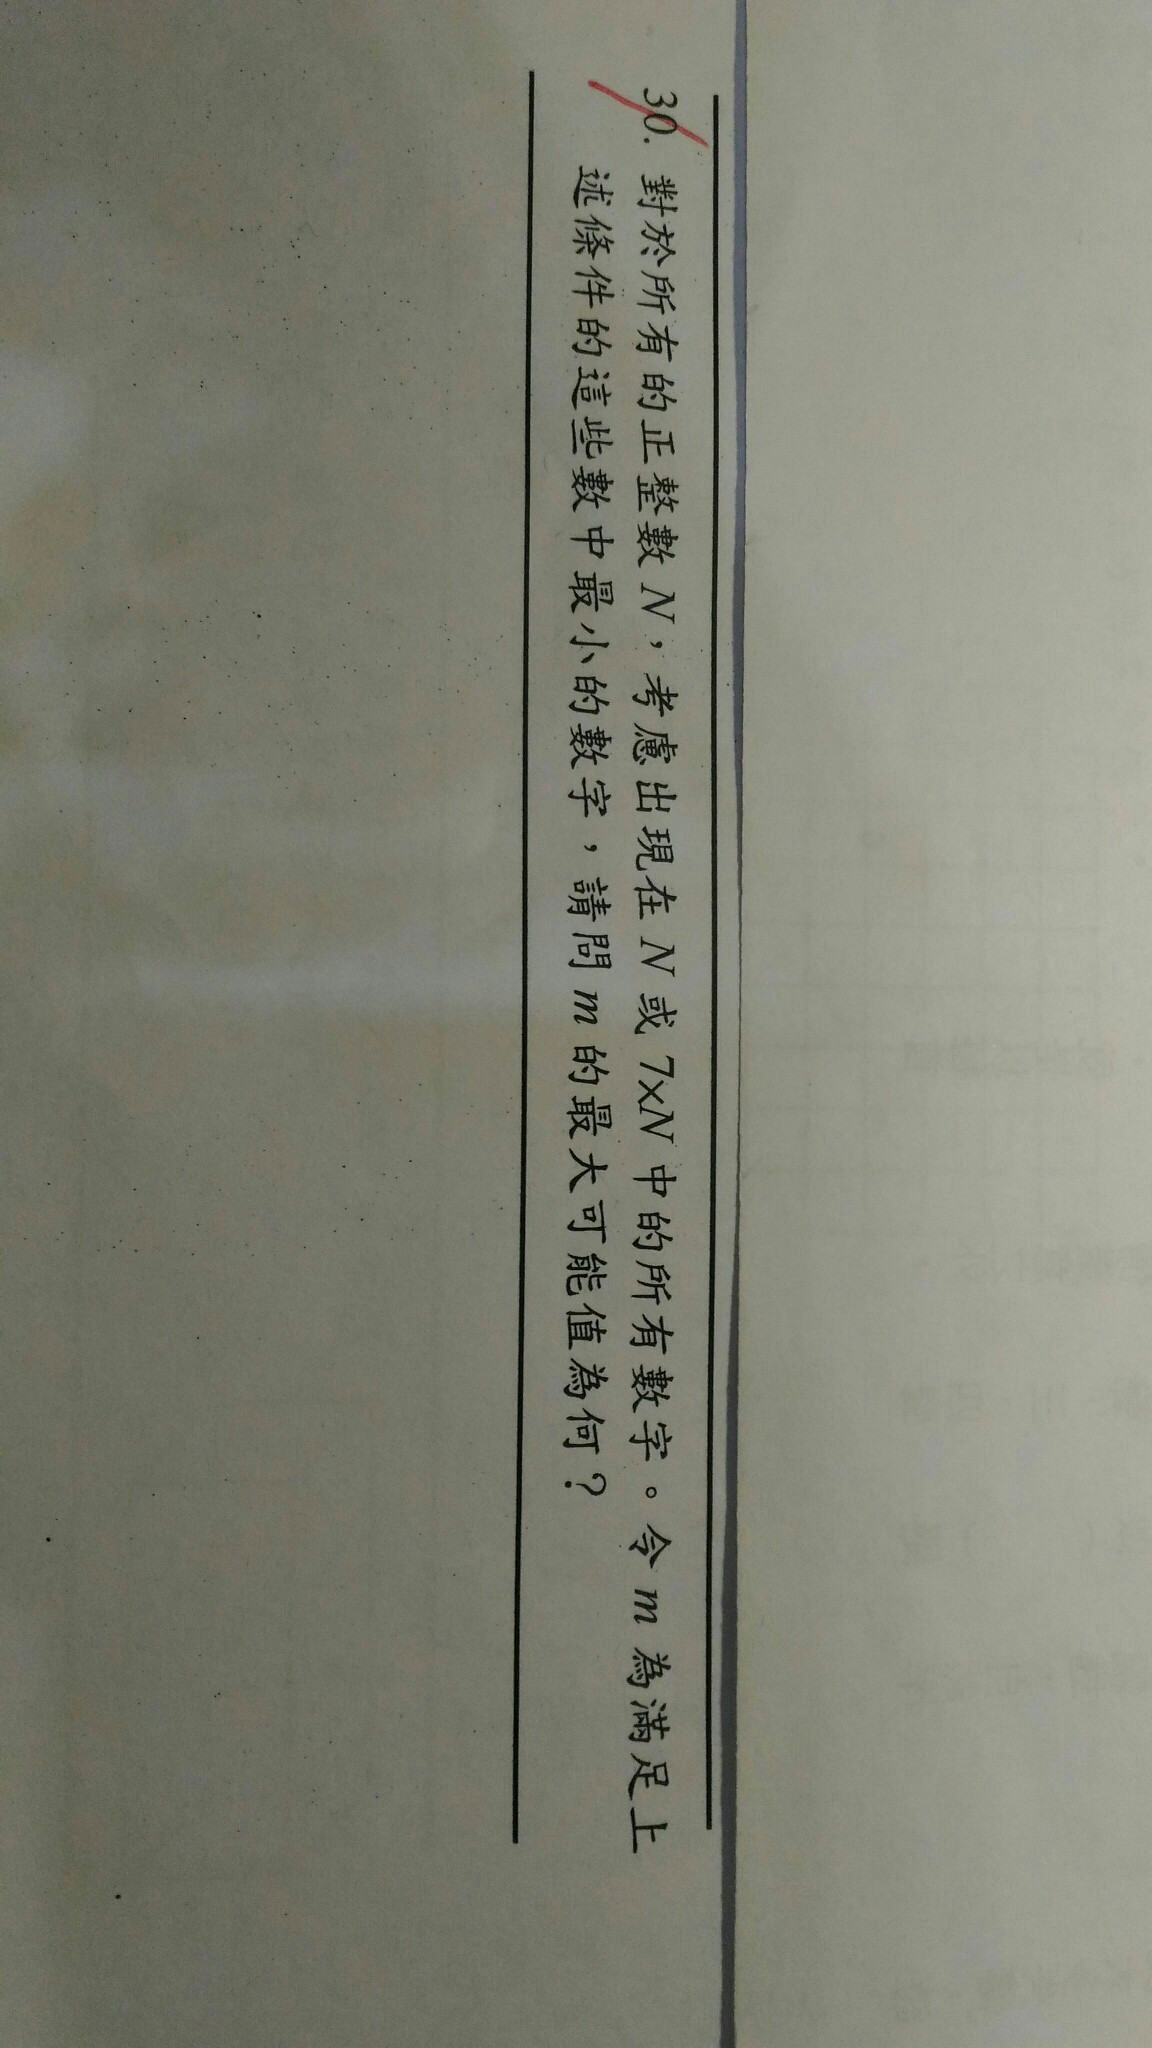 30. 對於所有的正整數 N，考慮出現在 N 或 7×N 中的所有數字。令 m 為滿足上
述條件的這些數中最小的數字，請問 m 的最大可能值為何？